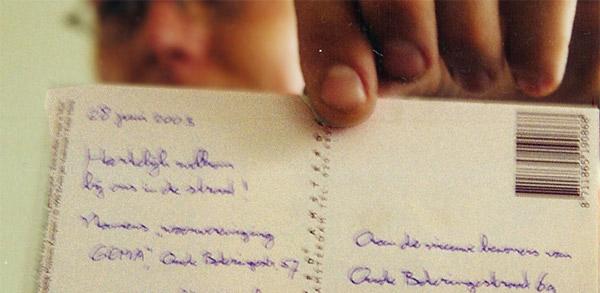 28 juni 2003
Hartelijk welkom
bij ons in de straat!
Namens, woonvereniging
"GEMA", Oude Boteringestr. 57
Aan de nieuwe bewoners van
Oude Boteringestraat 69
AMSTERDAM
8 711865 190865